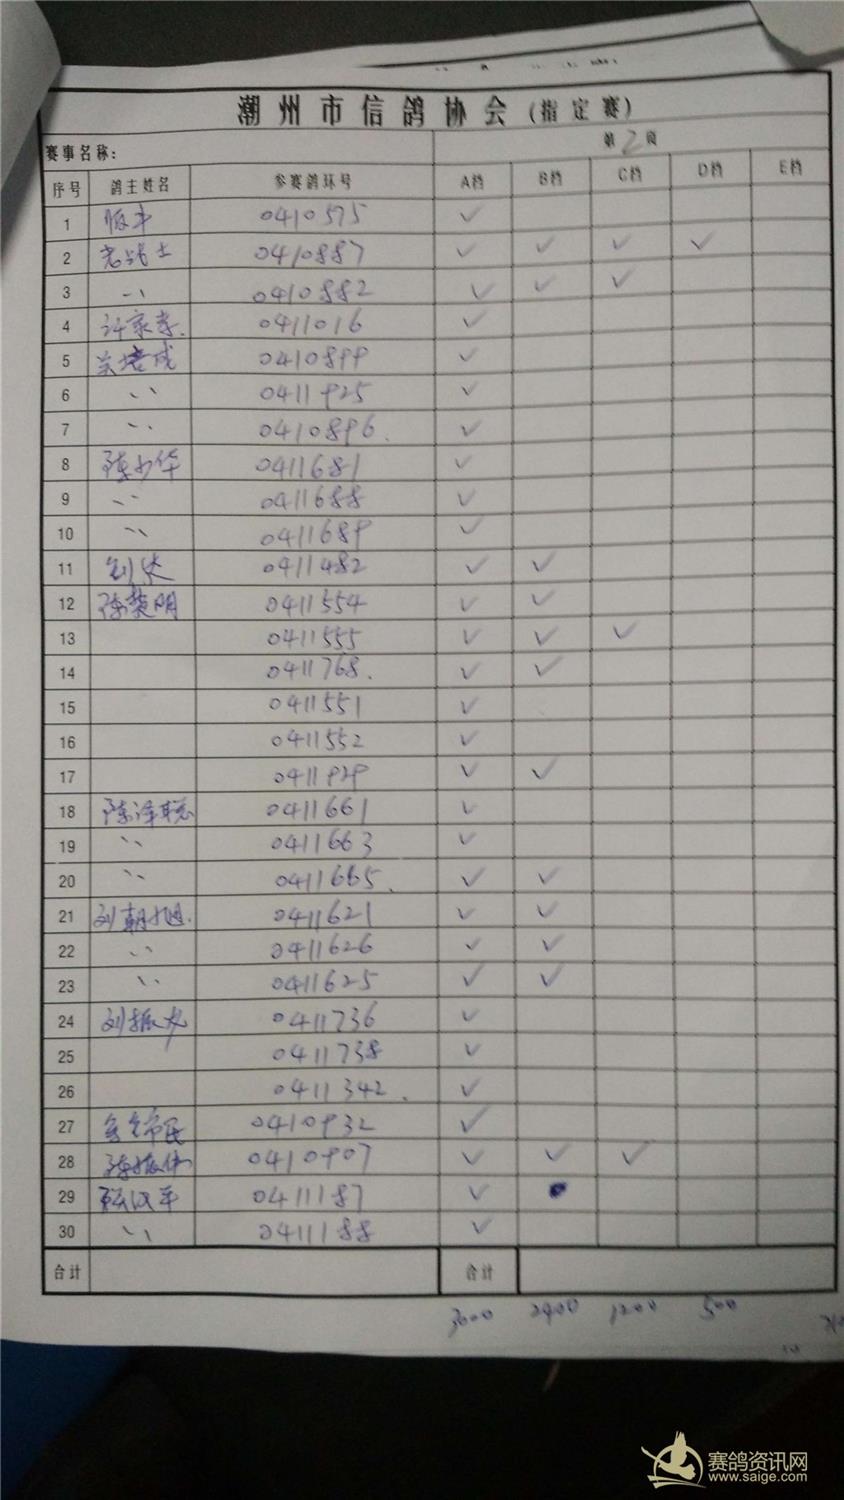 潮州市信鸽协会(指定赛)
赛事名称: 第2页
序号 鸽主姓名 参赛鸽环号 A档 B档 C档 D档 E档
1 0410575 ✓
2 老战士 0410887 ✓ ✓ ✓ ✓
3 〃 0410882 ✓ ✓ ✓
4 许家孝. 0411016 ✓
5 0410899 ✓
6 〃 0411925 ✓
7 〃 0410896. ✓
8 陈少华 0411681 ✓
9 〃 0411688 ✓
10 〃 0411689 ✓
11 0411482 ✓ ✓
12 陈楚明 0411554 ✓ ✓
13 0411555 ✓ ✓ ✓
14 0411768. ✓ ✓
15 0411551 ✓
16 0411552 ✓
17 0411929 ✓ ✓
18 陈泽聪 0411661 ✓
19 〃 0411663 ✓
20 〃 0411665. ✓ ✓
21 刘朝旭. 0411621 ✓ ✓
22 〃 0411626 ✓ ✓
23 〃 0411625 ✓ ✓
24 刘振龙 0411736 ✓
25 0411738 ✓
26 0411342. ✓
27 0410932 ✓
28 陈振伟 0410907 ✓ ✓ ✓
29 0411187 ✓
30 〃 0411188 ✓
合计 合计
3000 2400 1200 500
赛鸽资讯网
www.saige.com